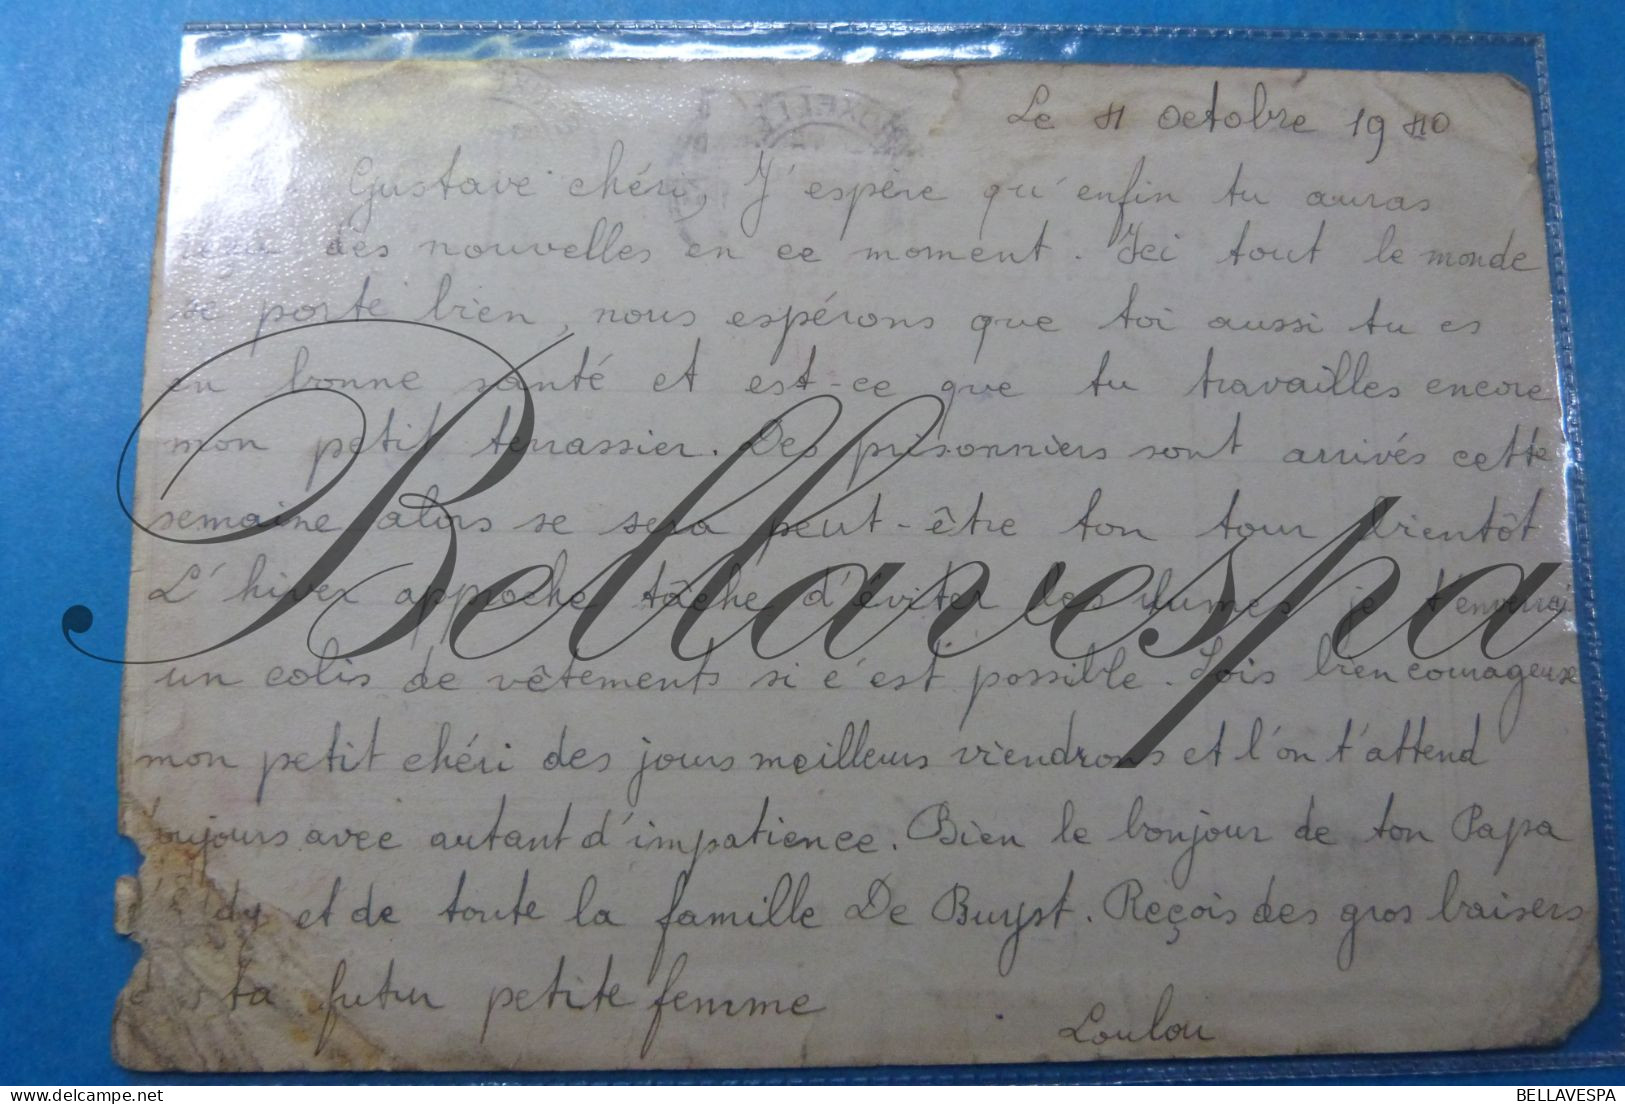 Le 4 Octobre 1940
Gustave chéri, J'espère qu'enfin tu auras
reçu des nouvelles en ce moment. Ici tout le monde
se porte bien, nous espérons que toi aussi tu es
en bonne santé et est-ce que tu travailles encore
mon petit terrassier. Des prisonniers sont arrivés cette
semaine alors se sera peut-être ton tour bientôt
L'hiver approche tâche d'éviter les rumes, je t'enverrai
un colis de vêtements si c'est possible. Sois bien courageuse
mon petit chéri des jours meilleurs viendrons et l'on t'attend
toujours avec autant d'impatience. Bien le bonjour de ton Papa
et de toute la famille De Buyst. Reçois des gros baisers
ta futur petite femme
Loulou
Bellavespa
BELLAVESPA